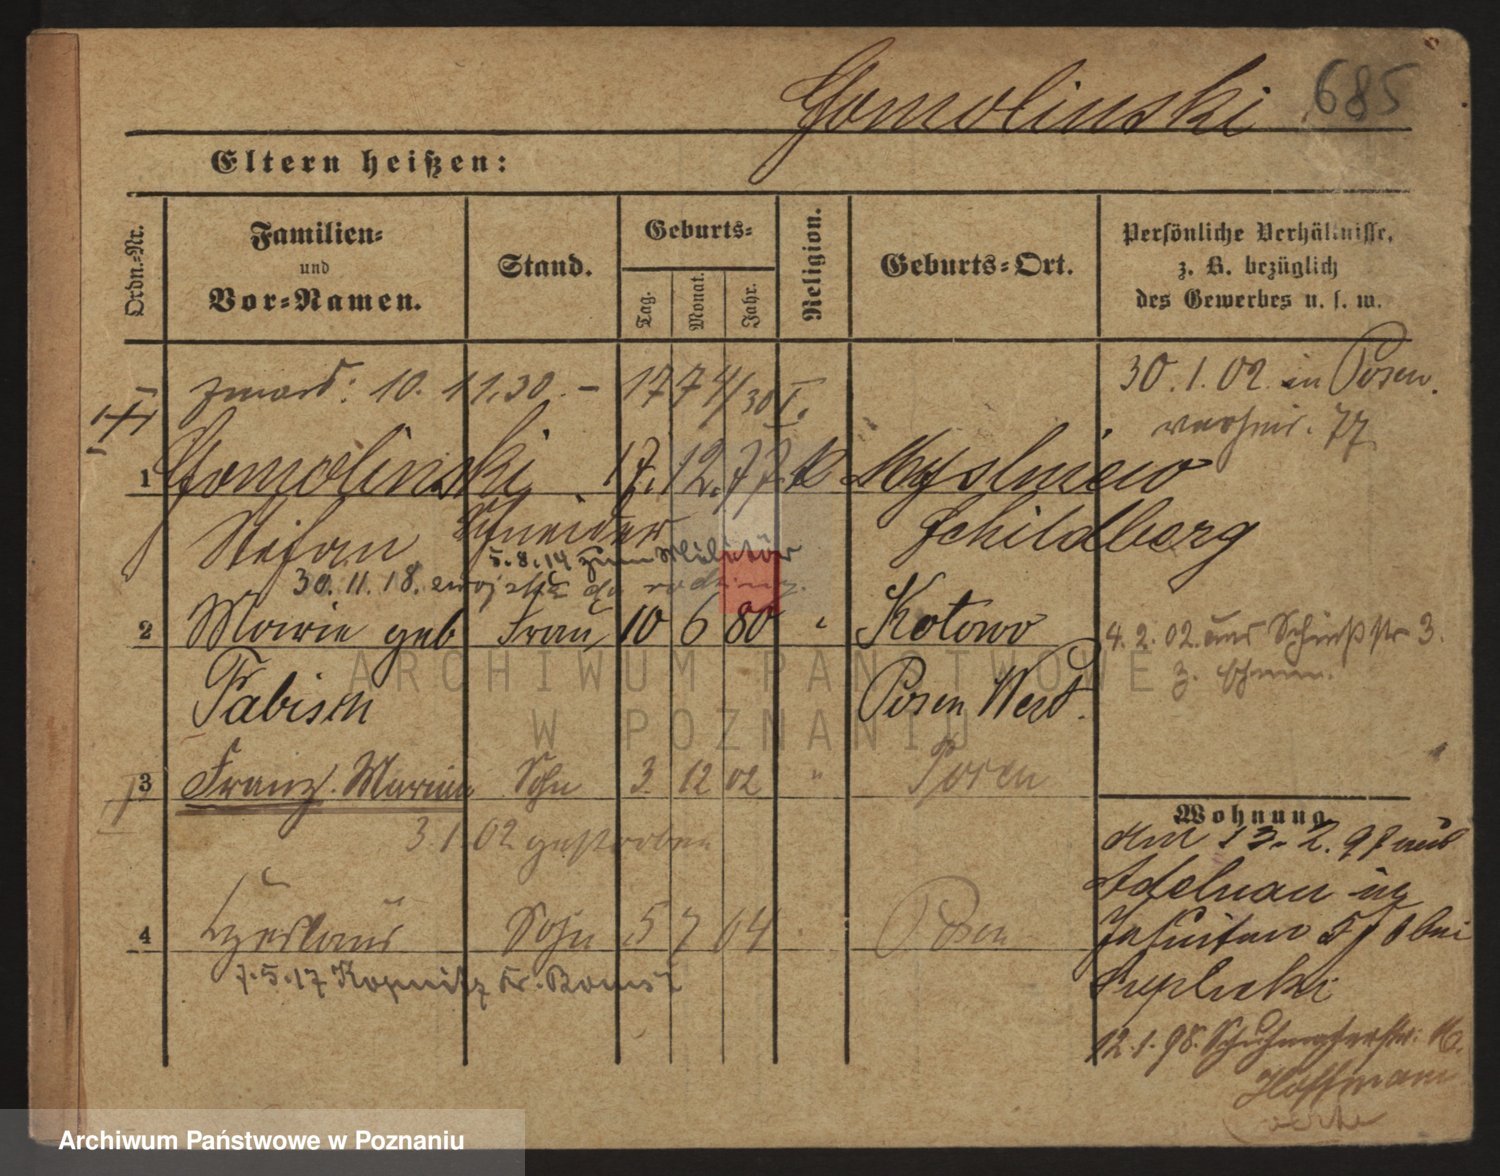 Gomolinski 685
Eltern heißen:
Ordn.-Nr.
Familien-
und
Vor-Namen.
Stand.
Geburts-
Tag.
Monat.
Jahr.
Religion.
Geburts-Ort.
Persönliche Verhältnisse,
z. B. bezüglich
des Gewerbes u. s. w.
zmarł: 10. 11. 30. –
30. 1. 02 in Posen
1 Gomolinski 17. 12. 77. k Myslniew
Stefan Schneider Schildberg
5. 8. 14 zum Militär
30. 11. 18.
2 Marie geb Frau 10 6 80 " Kotowo
4. 2. 02. aus 3.
Fabisch Posen West.
3 Franz. Marian Sohn 3. 12 02 " Posen
3. 1. 02 gestorben
Wohnung
Am 13. 2. 97 aus
Adelnau in
Jesuiten 5 bei
4 Czeslaus Sohn 5 7 04 Posen
7. 5. 17 Kopnitz Kr. Bomst
12. 1. 98.
Hoffmann
ARCHIWUM PAŃSTWOWE
W POZNANIU
Archiwum Państwowe w Poznaniu